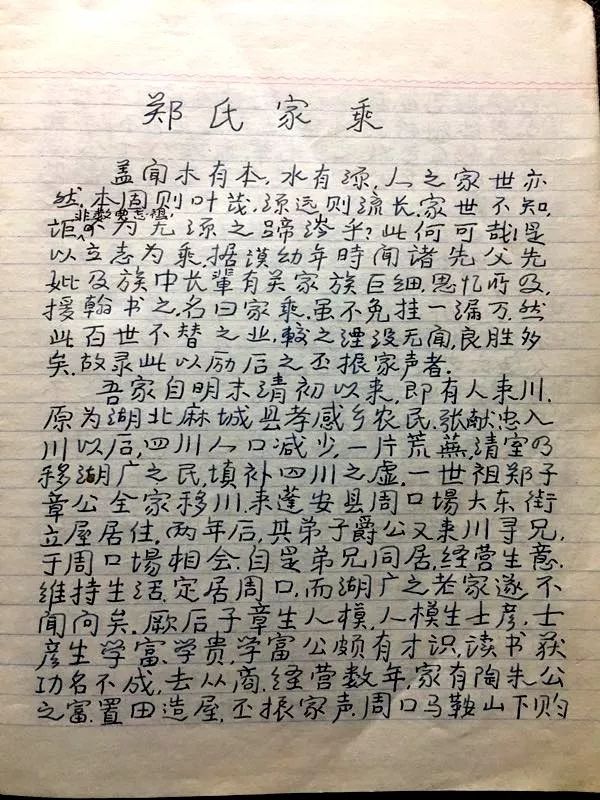 郑氏家乘
盖闻木有本，水有源，人之家世亦
然，本固则叶茂，源远则流长，家世不知，
非数典忘祖，
讵不为无源之蹄涔乎？此何可哉！是
以立志为乘，据谟幼年时闻诸先父先
妣及族中长辈有关家族巨细，思忆所及，
援翰书之，名曰家乘，虽不免挂一漏万，然
此百世不替之业，较之湮没无闻，良胜多
矣，故录此以励后之丕振家声者。
吾家自明末清初以来，即有人来川，
原为湖北麻城县孝感乡农民，张献忠入
川以后，四川人口减少，一片荒蕪，清室乃
移湖广之民，填补四川之虚，一世祖郑子
章公全家移川，来蓬安县周口場大东街
立屋居住，两年后，其弟子爵公又来川寻兄，
于周口場相会，自是弟兄同居，经营生意，
维持生活，定居周口，而湖广之老家遂不
闻问矣。厥后子章生人模，人模生士彦，士
彦生学富、学贵，学富公颇有才识，读书获
功名不成，去从商，经营数年，家有陶朱公
之富，置田造屋，丕振家声，周口马鞍山下购